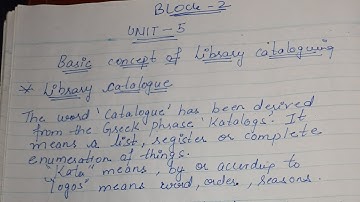 BLOCK-2
UNIT-5
Basic concept of Library cataloguing
* Library catalogue
The word 'catalogue' has been desired
from the Greek phrase 'Katalogs'. It
means a list, register or complete
enumeration of things.
"Kata" means, by or acurding to
"logos" means word, order, seasons.